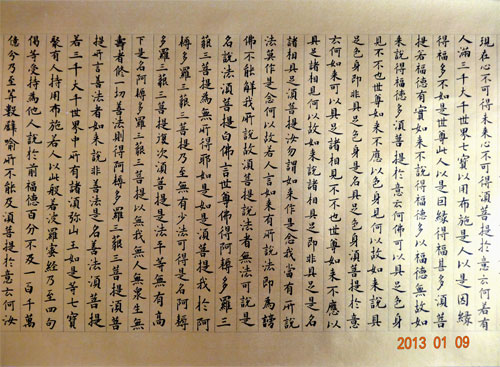 現在心不可得未來心不可得須菩提於意云何若有
人滿三千大千世界七寶以用布施是人以是因緣
得福多不如是世尊此人以是因緣得福甚多須菩
提若福德有實如來不說得福德多以福德無故如
來說得福德多須菩提於意云何佛可以具足色身
見不不也世尊如來不應以色身見何以故如來說具
足色身即非具足色身是名具足色身須菩提於意
云何如來可以具足諸相見不不也世尊如來不應以
具足諸相見何以故如來說諸相具足即非具足是名
諸相具足須菩提汝勿謂如來作是念我當有所說
法莫作是念何以故若人言如來有所說法即為謗
佛不能解我所說故須菩提說法者無法可說是
名說法須菩提白佛言世尊佛得阿耨多羅三
藐三菩提為無所得耶如是如是須菩提我於阿
耨多羅三藐三菩提乃至無有少法可得是名阿耨
多羅三藐三菩提復次須菩提是法平等無有高
下是名阿耨多羅三藐三菩提以無我無人無眾生無
壽者修一切善法則得阿耨多羅三藐三菩提須菩
提所言善法者如來說非善法是名善法須菩提
若三千大千世界中所有諸須彌山王如是等七寶
聚有人持用布施若人以此般若波羅蜜經乃至四句
偈等受持為他人說於前福德百分不及一百千萬
億分乃至算數譬喻所不能及須菩提於意云何汝
2013 01 09